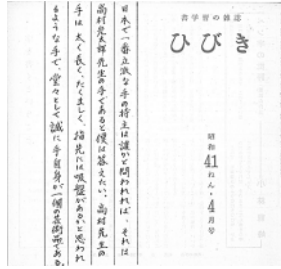 書学習の雑誌
ひびき
昭和41ねん・4月号
日本で一番立派な手の持主は誰かと問われれば、それは
高村光太郎先生の手であると僕は答えたい。高村先生の
手は太く長く、たくましく、指先には吸盤があるかと思われ
るような手で、堂々として誠に手自身が一個の芸術品である。